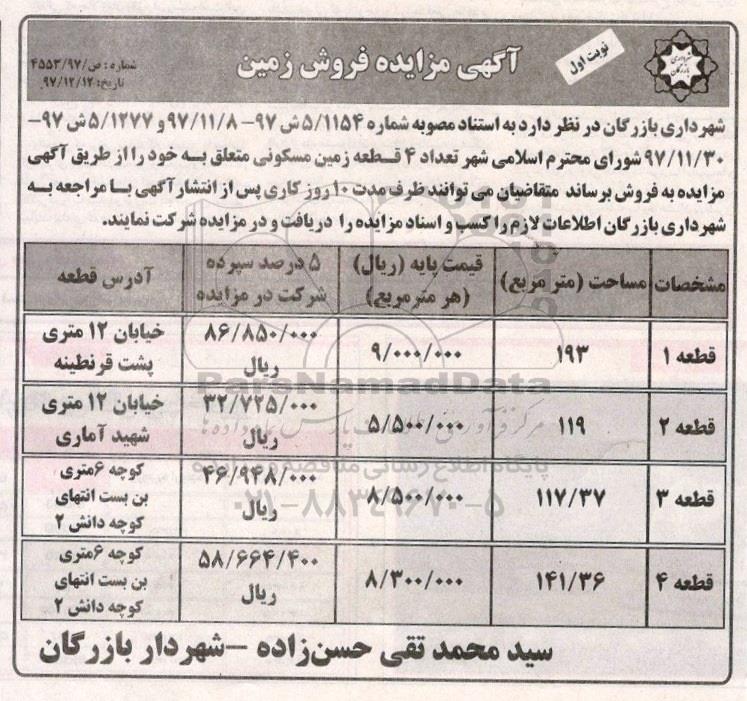 شهرداری
بازرگان
نوبت اول
آگهی مزایده فروش زمین
شماره: ص/۴۵۵۳/۹۷
تاریخ: ۹۷/۱۲/۱۲
شهرداری بازرگان در نظر دارد به استناد مصوبه شماره ۵/۱۱۵۴ش ۹۷- ۹۷/۱۱/۸ و ۵/۱۲۷۷ش ۹۷-
۹۷/۱۱/۳۰ شورای محترم اسلامی شهر تعداد ۴ قطعه زمین مسکونی متعلق به خود را از طریق آگهی
مزایده به فروش برساند متقاضیان می توانند ظرف مدت ۱۰ روز کاری پس از انتشار آگهی با مراجعه به
شهرداری بازرگان اطلاعات لازم را کسب و اسناد مزایده را دریافت و در مزایده شرکت نمایند.
مشخصات مساحت (متر مربع) قیمت پایه (ریال) (هر مترمربع) ۵ درصد سپرده شرکت در مزایده آدرس قطعه
قطعه ۱ ۱۹۳ ۹/۰۰۰/۰۰۰ ۸۶/۸۵۰/۰۰۰ ریال خیابان ۱۲ متری پشت قرنطینه
قطعه ۲ ۱۱۹ ۵/۵۰۰/۰۰۰ ۳۲/۷۲۵/۰۰۰ ریال خیابان ۱۲ متری شهید آماری
قطعه ۳ ۱۱۷/۳۷ ۸/۵۰۰/۰۰۰ ۴۶/۹۴۸/۰۰۰ ریال کوچه ۶متری بن بست انتهای کوچه دانش ۲
قطعه ۴ ۱۴۱/۳۶ ۸/۳۰۰/۰۰۰ ۵۸/۶۶۴/۴۰۰ ریال کوچه ۶متری بن بست انتهای کوچه دانش ۲
سید محمد تقی حسن‌زاده -شهردار بازرگان
ParsNamadData
پایگاه اطلاع رسانی مناقصه و مزایده
۰۲۱-۸۸۳۴۹۶۷۰-۵